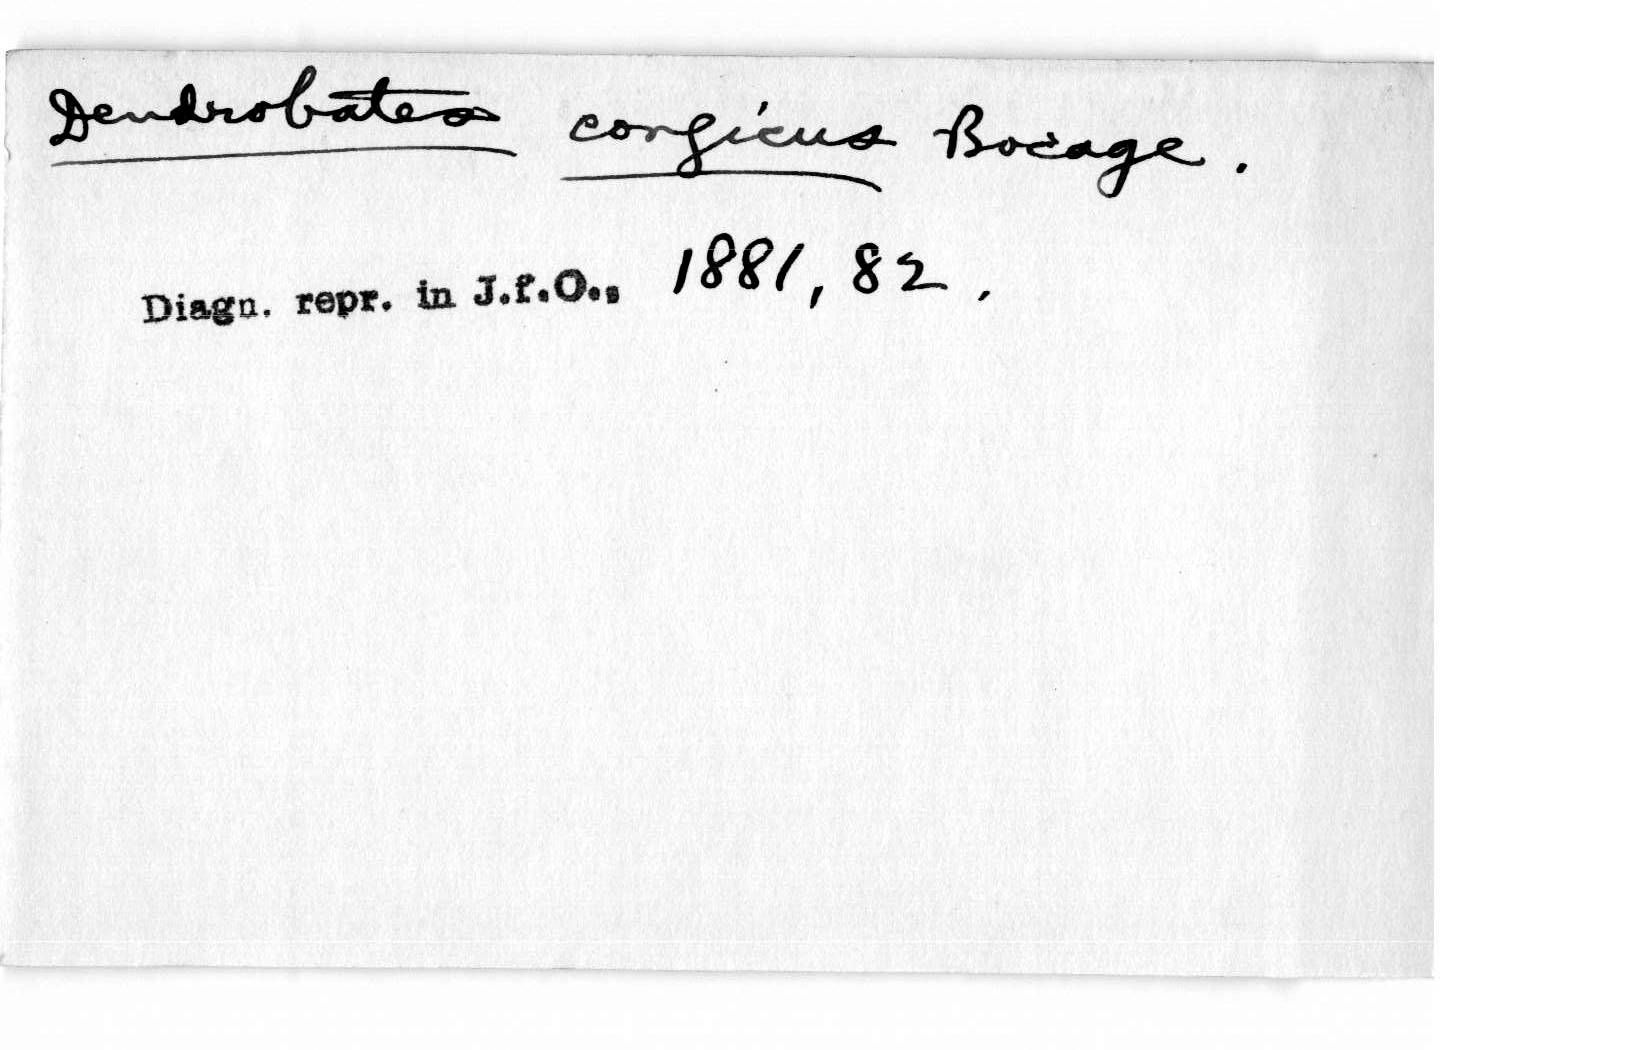 Dendrobates congicus Bocage.
Diagn. repr. in J.f.O., 1881, 82.